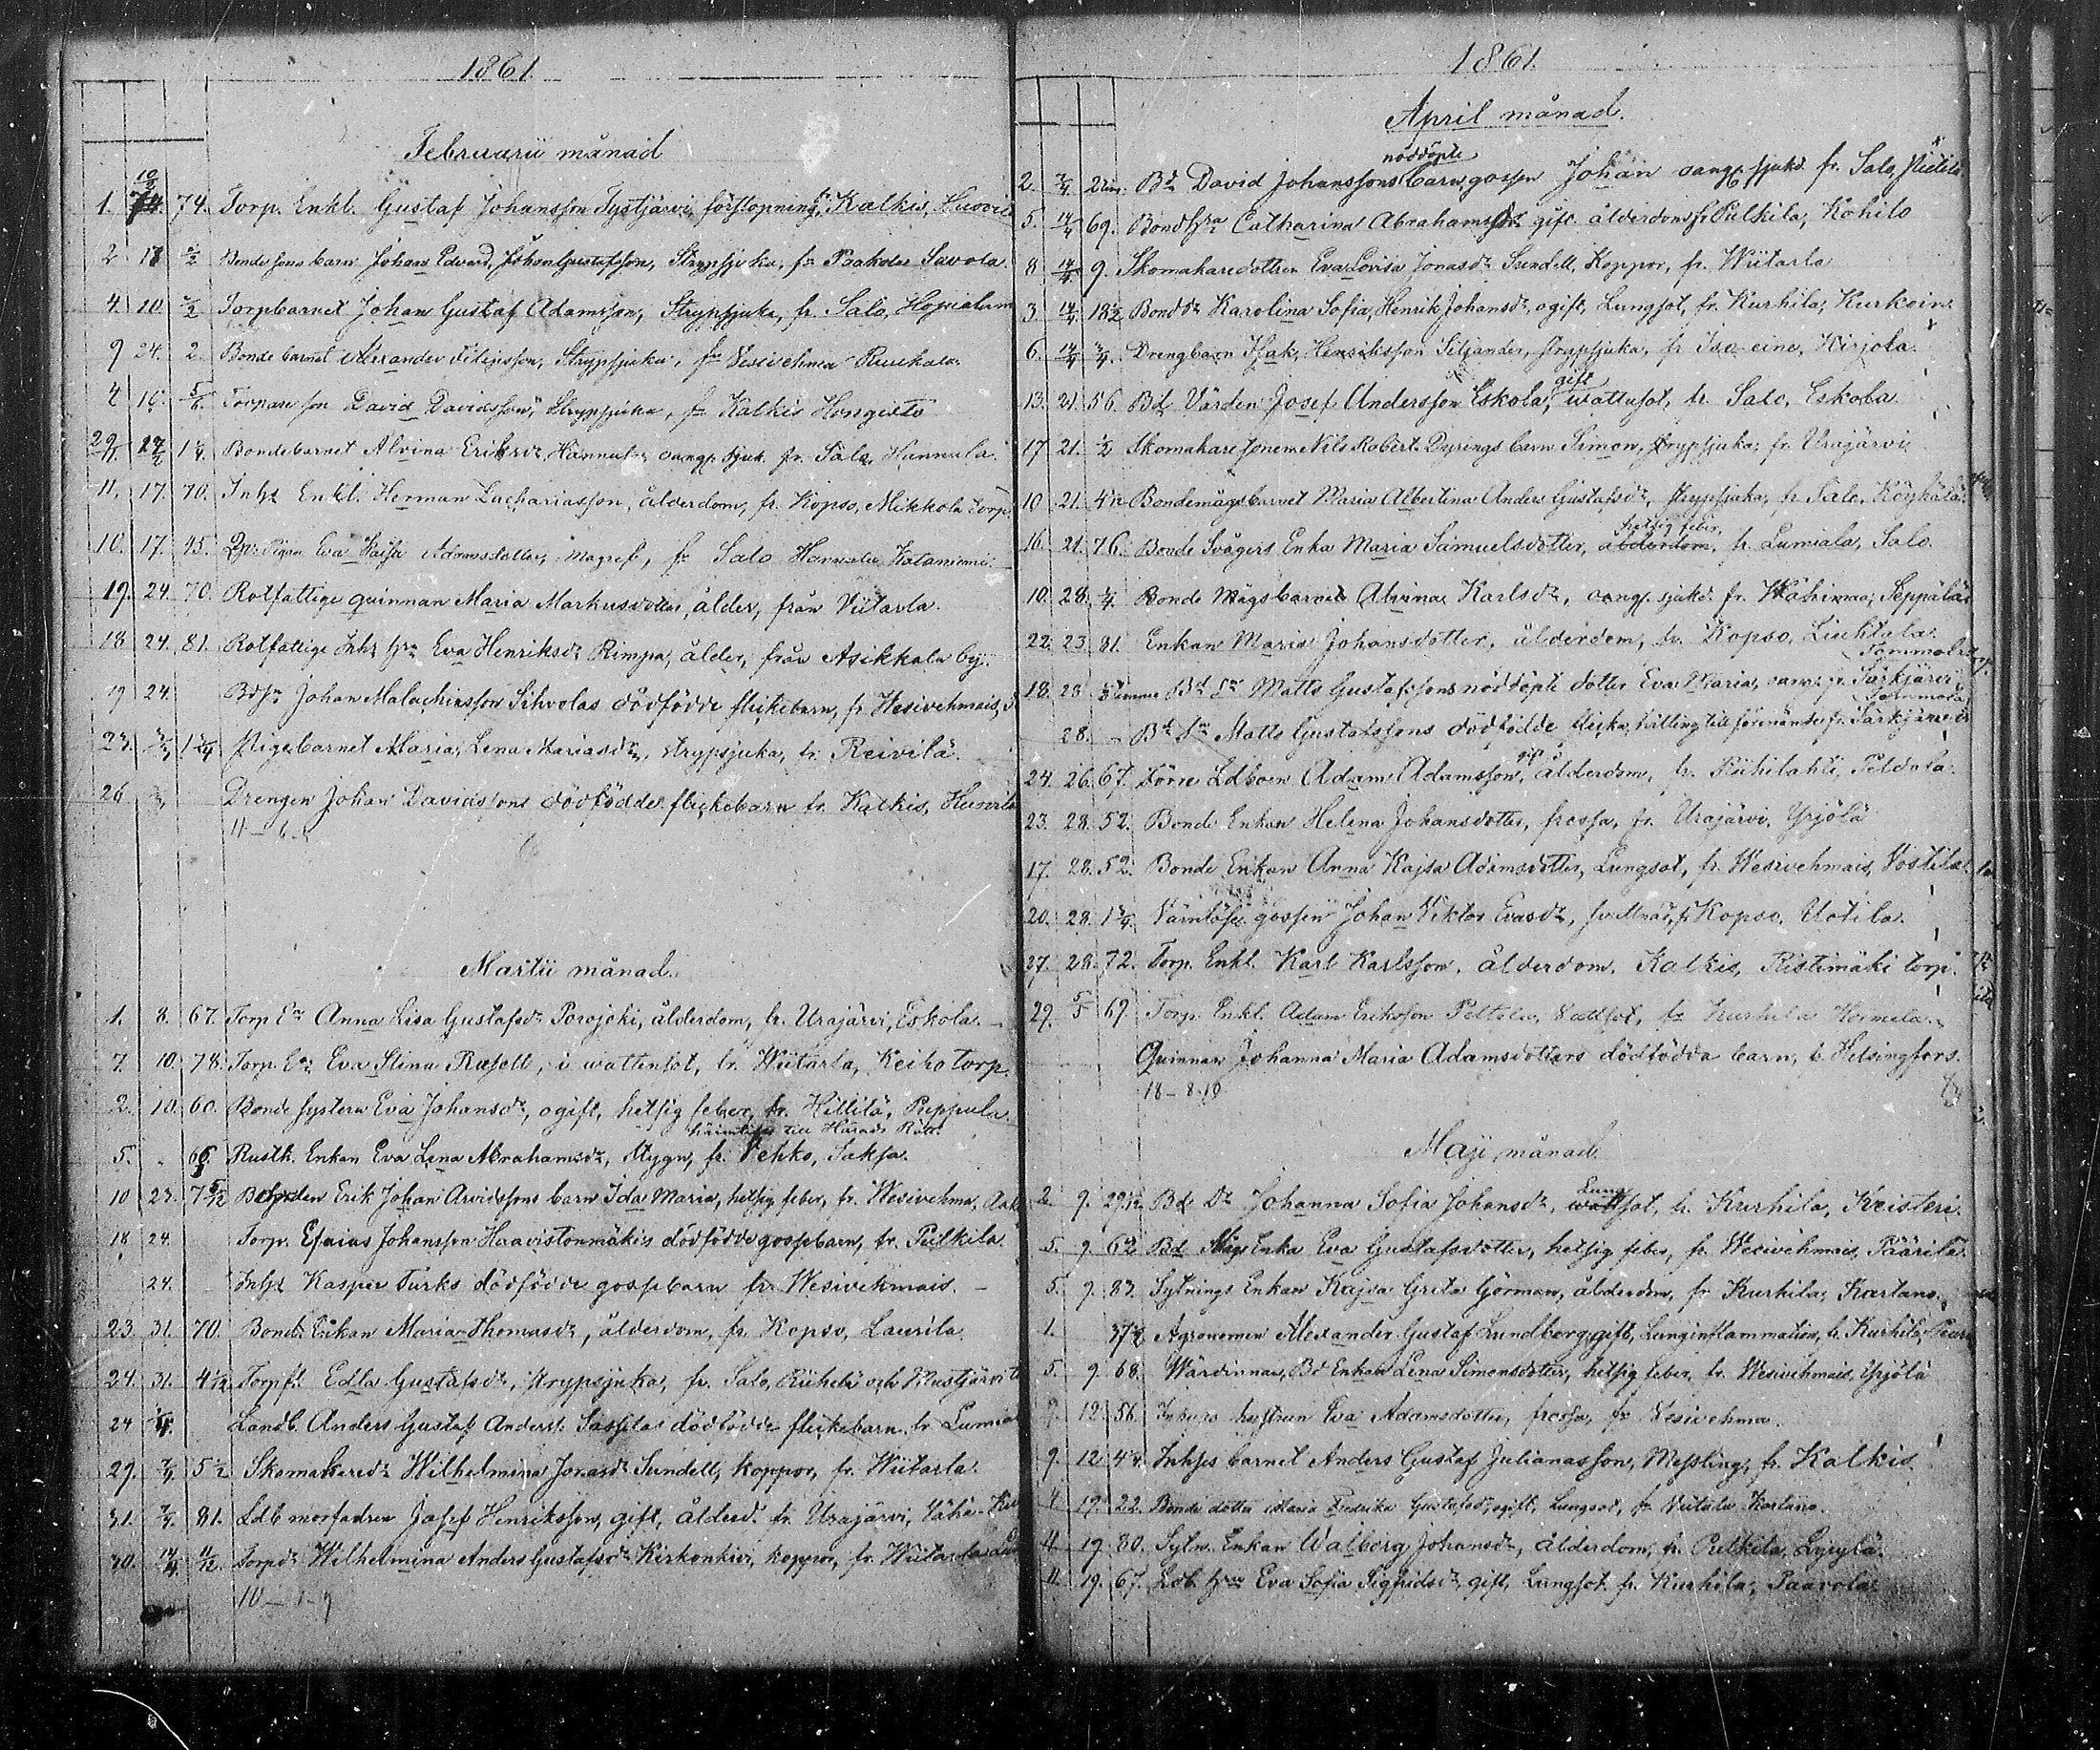 1861.
Februarii månad
1. 10/2 74. Torp. Enkl. Gustaf Johansson Tystjärvi, förstopning, fr. Kalkis, Huovila
2 18 1/2 Bonde sons barn Johan Edvard Johan Gustafsson, Strypsjuka, fr Paakola Savola.
4. 10. 1/2 Torpbarnet Johan Gustaf Adamsson, Strypsjuka, fr. Salo,
9 24. 2. Bonde barnet Alexander Filipsson, Strypsjuka, fr Vesivehma
4 10. 5/6. Torpare son David Davidsson, Strypsjuka, fr Kalkis Hongisto
29/1 17/2 1 1/4. Bondebarnet Alvina Eriksdr Hannula oangf. sjuk. fr. Salo, Hannula
11. 17. 70. Inhs Enkl. Herman Zachariasson, ålderdom, fr. Kopso, Mikkola torp
10. 17. 45. Pigan Eva Kaisa Adamsdotter, magref, fr Salo Hannula Kataniemi.
19. 24. 70. Rotfattige qvinnan Maria Markusdotter, ålder, från Viitarla.
18 24. 81. Rotfattige Inhs hru Eva Henriksdr Rimpa, ålder, från Asikkala by.
19 24. Bdsn Johan Malachiasson Sihvolas dödfödde flickebarn, fr Wesivehmais,
23. 3/3 1 1/4 Pigebarnet Maria Lena Mariasdr, strypsjuka, fr. Reivilä.
26 3/3 Drengen Johan Davidssons dödfödde flickebarn fr. Kalkis, Huovila
11 – 6 – 5
Martii månad.
1. 8. 67. Torp En Anna Lisa Gustafsdr Porojoki, ålderdom, fr. Urajärvi, Eskola. –
7. 10. 78. Torp. En Eva Stina Rusell, i wattensot, fr. Wiitarla, Keiho torp.
2. 10. 60. Bonde systern Eva Johansdr, ogift, hetsig feber, fr. Hillilä, Peppula.
hänvisas till Härads Rätt.
5. „ 66. Rusth. Enkan Eva Lena Abrahamsdr, Stygn, fr. Vehko, Saksa.
10 23. 7 5/12 Erik Johan Arvidssons barn Ida Maria, hetsig feber, fr. Wesivehma,
18 24. Torp. Esaias Johansson Haavistonmäkis dödfödde gossebarn, fr. Pulkila.
24. Inhs Kasper Turks dödfödde gossebarn fr. Wesivehmais. –
23 31. 70. Bonde Enkan Maria Thomasdr, ålderdom, fr. Kopso, Laurila.
24. 31. 4 1/12 Torpfl. Edla Gustafsdr, strypsjuka, fr. Salo, Riihelä och Mustjärvi
24 1/4. Landb. Anders Gustaf Anderss. dödfödde flickebarn. fr Lumia
29. 7/4 5 1/2 Skomakaredr Wilhelmina Jonasdr Sundell, koppor, fr. Wiitarla.
31. 7/4. 81. Ldb morfadren Josef Henriksson, gift, ålderd. fr. Urajärvi, Vähä
30. 14/4 11/12. Torpdr Wilhelmina Anders Gustafsdr Kirkonkivi, koppor, fr. Wiitarla
10 – 1 – 9
1861.
April månad.
nöddöpte
2. 7/4 2 tim. Bd David Johanssons barn, gossen Johan oangf. sjukd. fr. Salo,
5. 14/4 69. Bondhru Catharina Abrahamsdr gift ålderdom fr Pulkila, Kohilo
8 14/4 9. Skomakaredottren Eva Lovisa Jonasdr Sundell, Koppor, fr. Wiitarla
3. 14/4 18 1/2 Bonddr Karolina Sofia, Henrik Johansdr, ogift, Lungsot, fr. Kurhila,
6. 14/4 3/4. Drengbarn Isak Henriksson Siljander, strypsjuka, fr Iso-eine, Kirjola.
gift
13. 21. 56. Bd Värden Josef Andersson Eskola, wattusot, fr. Salo, Eskola
17 21. 1/2 Skomakare sonen Nils Robert Dyrings barn Simon, strypsjuka, fr. Urajärvi.
10 21. 4 Bondemågs barnet Maria Albertina Anders Gustafsdr, strypsjuka, fr Salo, Köykälä.
hetsig feber
16. 21. 76. Bonde Svågers Enka Maria Samuelsdotter, ålderdom, fr. Lumiala, Salo.
10. 28. 3/4. Bonde Mågs barnet Alvina Karlsdr, oangf. sjukd. fr. Wähimaa, Seppälä
22. 23. 81. Enkan Maria Johansdotter. ålderdom, fr. Kopso, Liuhtala.
Sammola
18. 28. Bd Sn Matts Gustafssons nöddöpte dotter Eva Maria, oangf. fr. Särkjärvi
Sammola
28. – Bd Sn Matts Gustafssons dödfödde flicka, tvilling till förenämde fr. Särkjärvi
gift
24. 26. 67. Förre Ldboen Adam Adamsson, ålderdom, fr. Riihilahti, Peldola.
23. 28. 52. Bonde Enkan Helena Johansdotter, frossa, fr. Urajärvi, Yrjölä
17. 28. 52. Bonde Enkan Anna Kajsa Adamsdotter, Lungsot, fr. Wesivehmais, Vostila.
20. 28. 1 3/4. Värnlöse gossen Johan Viktor Evasdr, fr Kopso, Uotila.
27. 28. 72. Torp. Enkl. Karl Karlsson. ålderdom. Kalkis, Ristimäki torp.
29. 5/5 69. Torp. Enkl. Adam Eriksson Peltola, Vattsot, fr Kurhila
Qvinnan Johanna Maria Adamsdotters dödfödda barn, fr. Helsingfors.
18 – 8. 10
Maji månad.
Lung
2. 9. 29 Bd Dr Johanna Sofia Johansdr, wattsot, fr. Kurhila, Kreisteri.
5. 9. 62 Bd Måg Enka Eva Gustafsdotter, hetsig feber, fr. Wesivehmais, Päärilä.
5. 9. 83. Sytnings Enkan Kajsa Greta Görman, ålderdom, fr Kurhila, Kartano.
1. 37 1/2 Agronomen Alexander Gustaf Lundberg gift, Lunginflammation, fr. Kurhila,
5. 9. 68. Wärdinnan, Bd Enkan Lena Simonsdotter, hetsig feber, fr. Wesivehmais, Yrjölä
9. 12. 56. Inhyses hustrun Eva Adamsdotter, frossa, fr Vesivehma.
9. 12. 4 Inhses barnet Anders Gustaf Julianasson, Messling, fr. Kalkis.
4 19. 22. Bonde dotter Maria Fredrika Gustafsdr, ogift, Lungsot, fr Viitala Kartano.
4 19. 80. Sytn. Enkan Walborg Johansdr, ålderdom, fr. Pulkila, Lyrylä.
11. 19. 67. Ldb. hru Eva Sofia Sigfridsdr, gift, Lungsot, fr. Kurhila, Paavola.